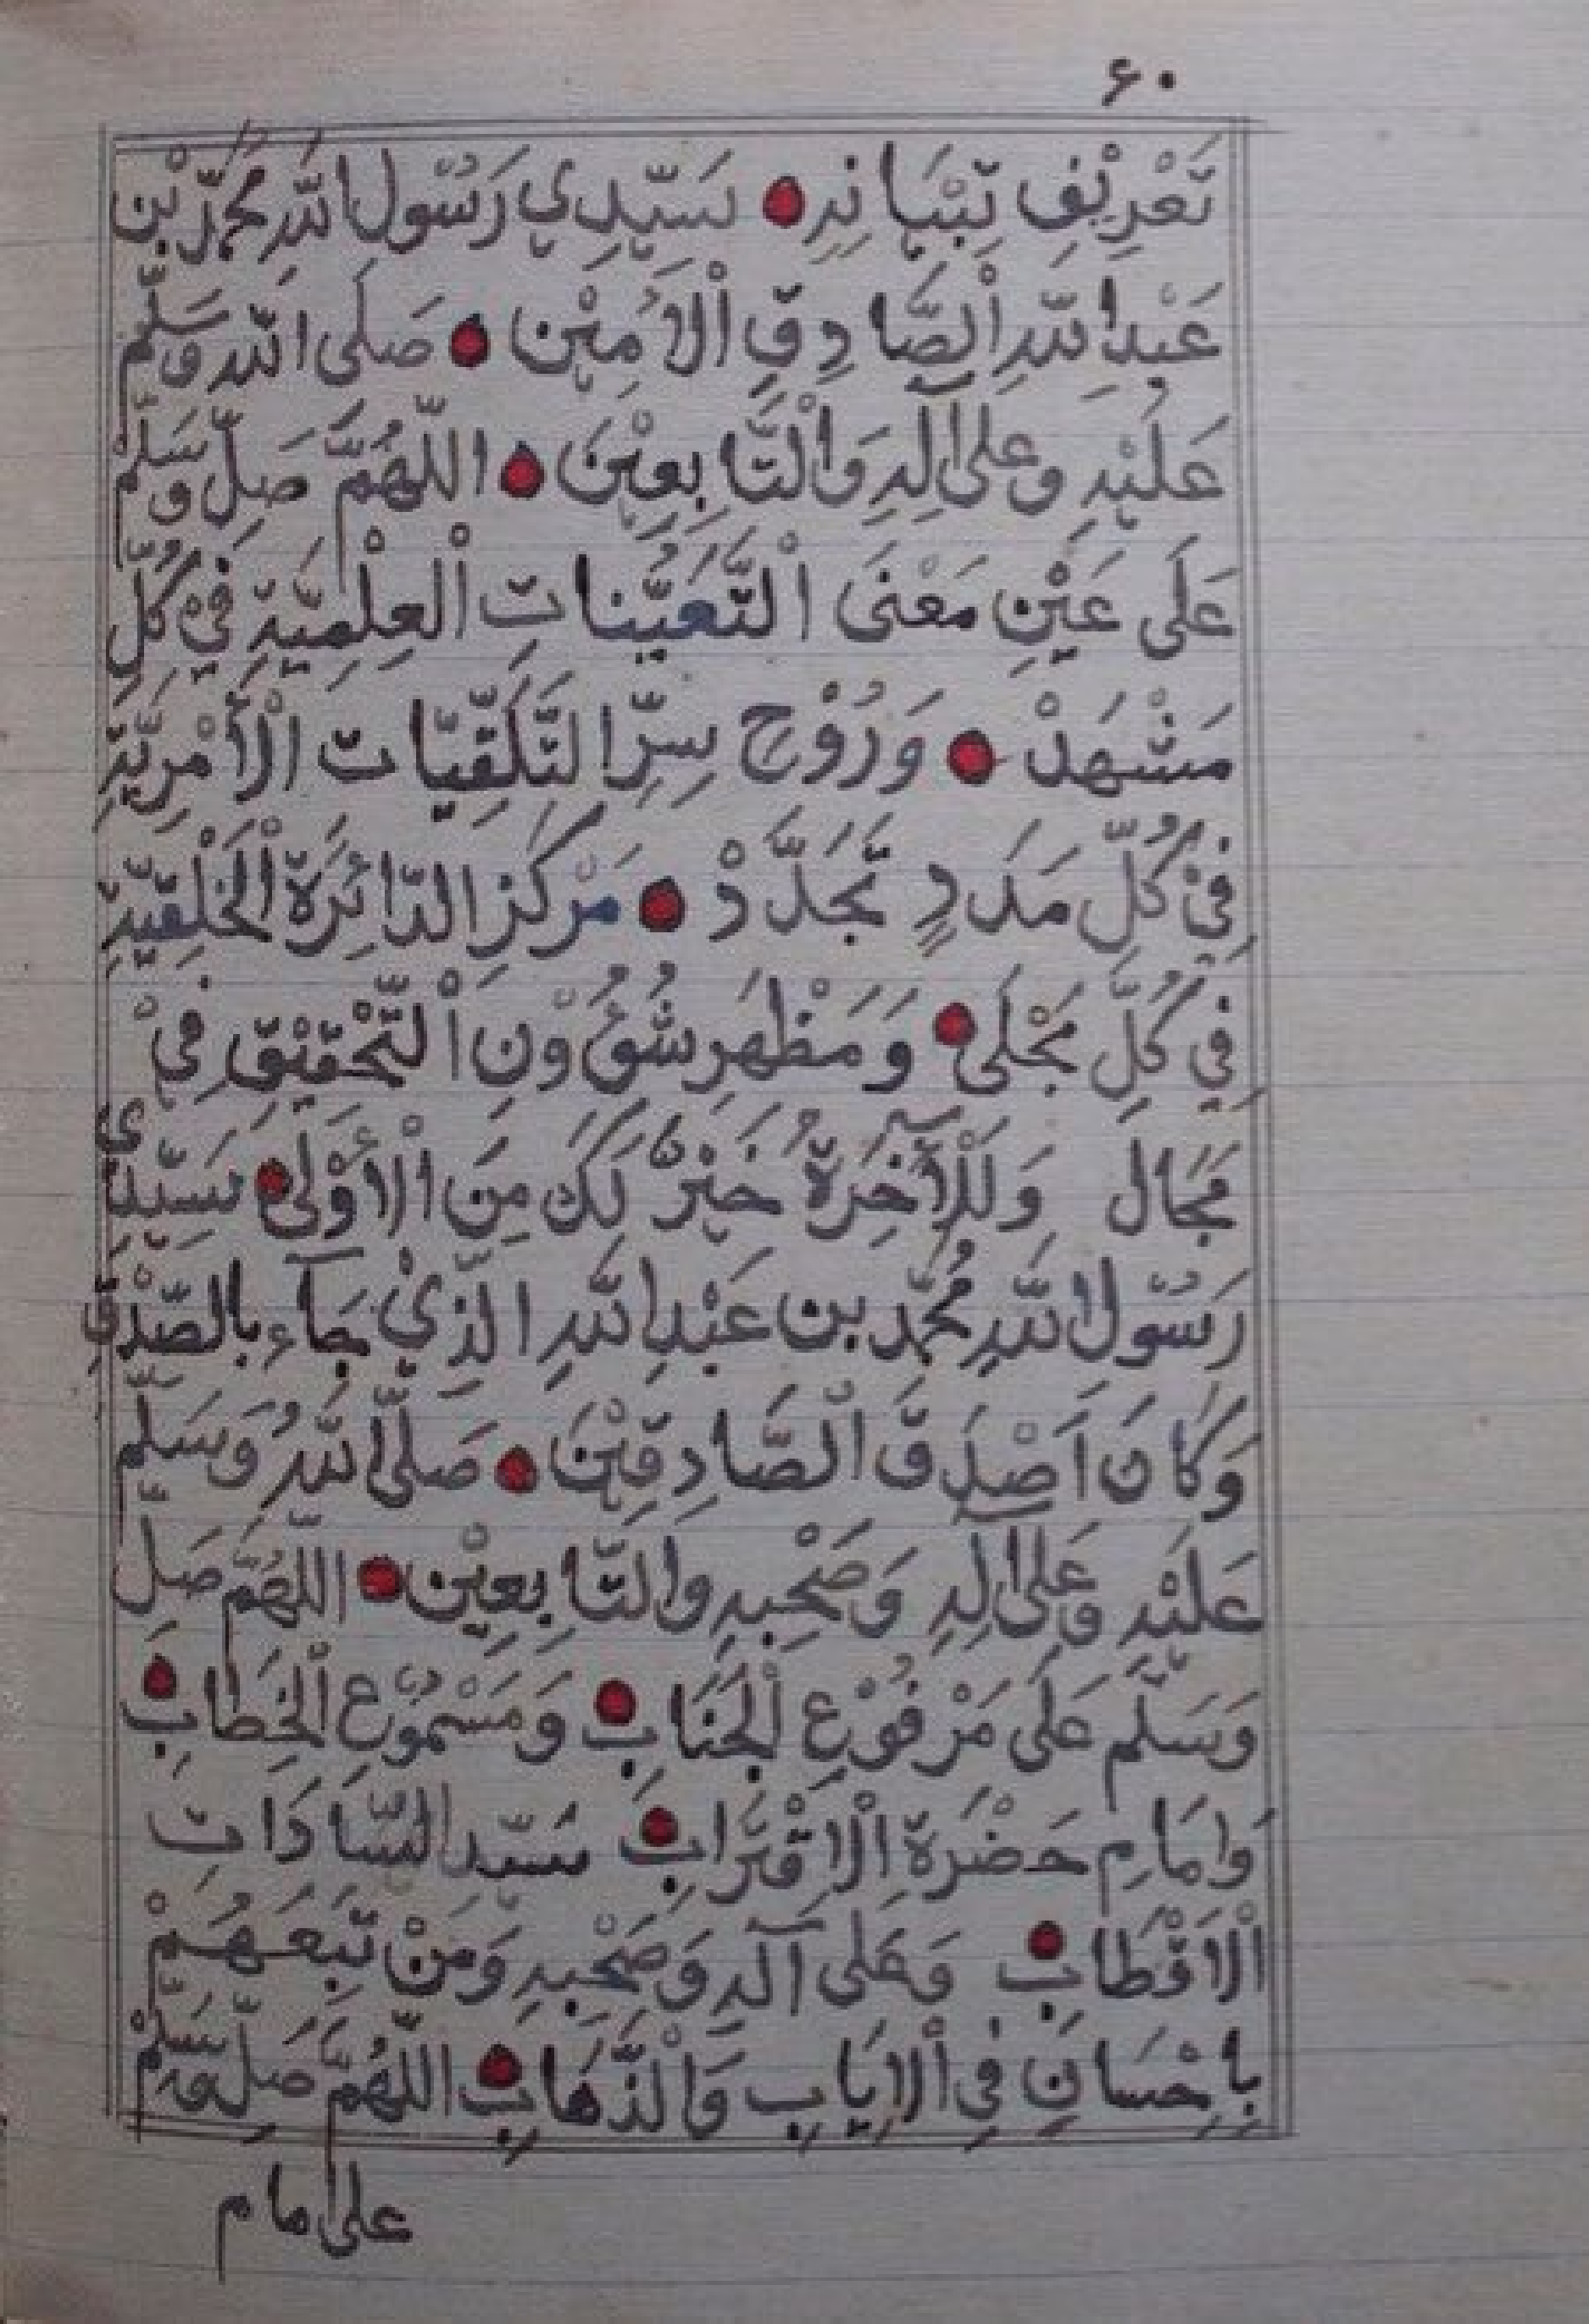 ۶۰
تَعْرِيْفِ تِبْيَانِهِ ● سَيِّدِي رَسُوْلِ اللّٰهِ مُحَمَّدْ بْنِ
عَبْدِ اللّٰهِ الصَّادِقِ الْاَمِيْن ● صَلَى اللّٰه وَسَلَّم
عَلَيْهِ وعَلٰى آلِهِ وَالْتَّابِعِيْنَ ● اللّٰهُمَّ صَلِّ وَسَلِّم
عَلَى عَيْنِ مَعْنَى الْتَّعَيُّنَاتِ الْعِلْمِيَّةِ فِيْ كُلِّ
مَشْهَدْ ● وَرُوْحِ سِرِّ التَّلَقِّيَات الْاَمْرِيَّةِ
فِيْ كُلِّ مَدَدٍ تَجَدَّدْ ● مَرْكَزِ الدَّائِرَةِ الْخَلْقِيَّةِ
فِي كُلِّ مَجْلَى ● وَمَظْهَرِ شُؤُوْنِ الْتَّحْقِيْقِ فِيْ
مَجَال وَلَلْآخِرَةُ خَيْرٌ لَكَ مِنَ الْاُوْلٰى ● سَيِّدِيْ
رَسُوْلِ اللّٰهِ مُحَمَّد بن عَبْدِ اللّٰهِ الَّذِيْ جَآءَ بِالصِّدْقِ
وَكَانَ اَصْدَقَ الْصَّادِقِيْنَ ● صَلَّى اللّٰهُ وَسَلَّم
عَلَيْهِ وَعَلٰى آلِهِ وَصَحْبِهِ والتَّابِعِيْن ● اللّٰهُمَّ صَلِّ
وَسَلِّم عَلَى مَرْفُوْعِ الْجَنَابِ ● وَمَسْمُوْعِ الْخِطَابِ ●
وَاِمَامِ حَضْرَةِ الْاِقْتِرَابِ ● سَيِّد السَّادَاتِ
الْاَقْطَابِ ● وَعَلَى آلِهِ وَصَحْبِهِ وَمَنْ تَبِعَهُمْ
بِاِحْسَانِ فِي الْاِيَابِ وَالْذَّهَابِ ● اللّٰهُمَّ صَلِّ وَسَلِّمْ
على امام